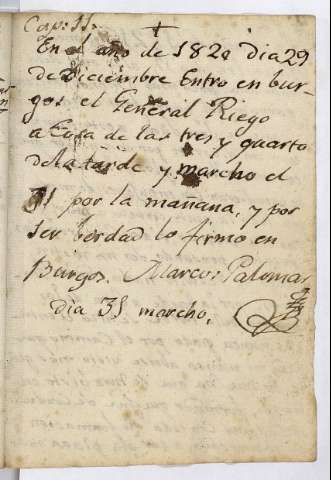 Cap: 11.
En el año de 1820 dia 29
de Diciembre Entro en bur-
gos el General Riego
a Eora de las tres y quarto
de la tarde y marcho el
31 por la mañana, y por
ser berdad lo firmo en
Burgos. Marcos Palomar
dia 31 marcho.